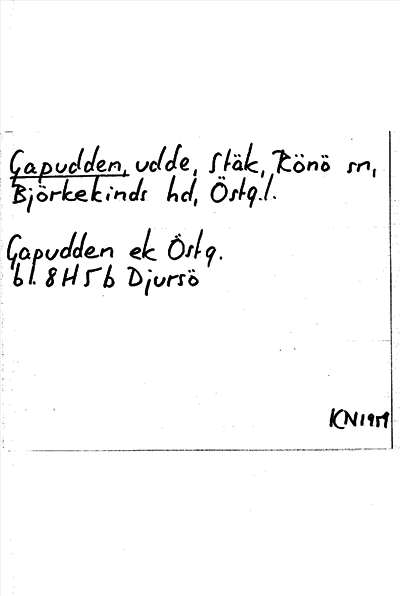 Gapudden, udde, Stäk, Rönö sn,
Björkekinds hd, Östg.l.
Gapudden ek Östg.
bl. 8H5b Djursö